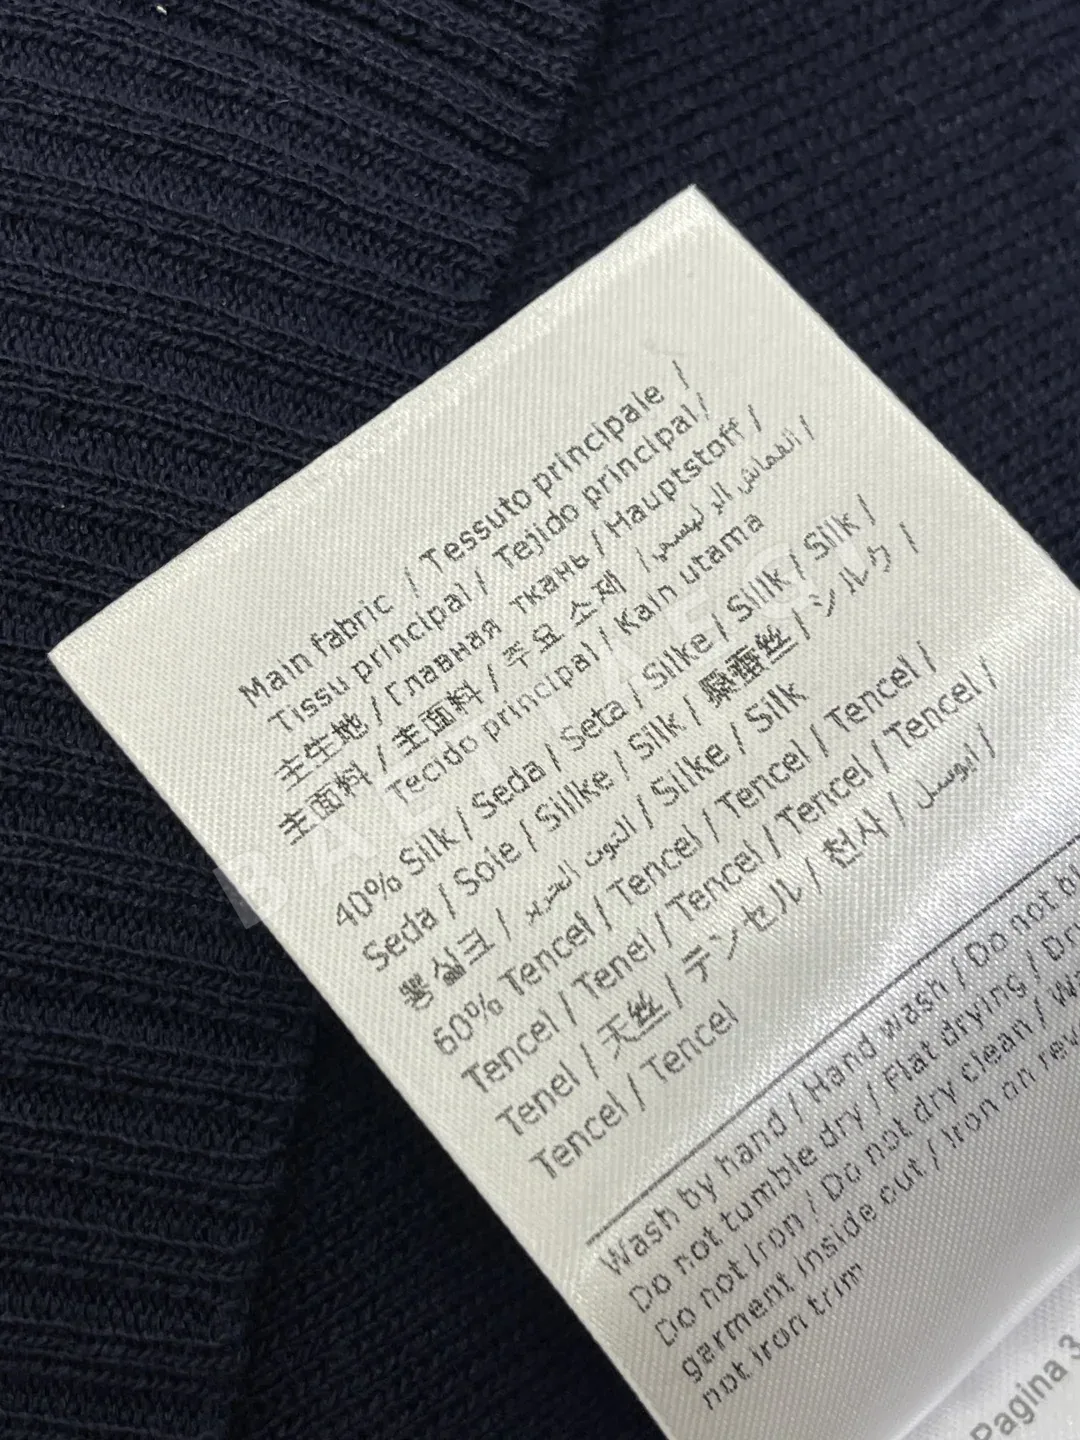 Main fabric / Tessuto principale /
Tissu principal / Tejido principal /
主生地 / Главная ткань / Hauptstoff /
主面料 / 主面料 / 주요 소재 /
Tecido principal / Kain utama
40% Silk / Seda / Seta / Silke / Sillk / Silk /
Seda / Soie / Sillke / Silk / 桑蚕丝 / シルク /
뽕실크 / / Silke / Silk
60% Tencel / Tencel / Tencel / Tencel /
Tencel / Tenel / Tencel / Tencel / Tencel /
Tenel / 天丝 / テンセル / 천사 /
Tencel / Tencel
Wash by hand / Hand wash / Do not bl
Do not tumble dry / Flat drying / Dry
Do not iron / Do not dry clean / Wa
garment inside out / Iron on rev
not iron trim
Pagina 3